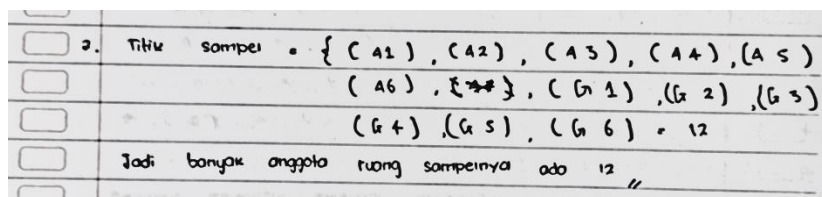 2. Titik sampel = { (A1), (A2), (A3), (A4), (A5)
(A6), (G1), (G2), (G3)
(G4), (G5), (G6) = 12
Jadi banyak anggota ruang sampelnya ada 12 //